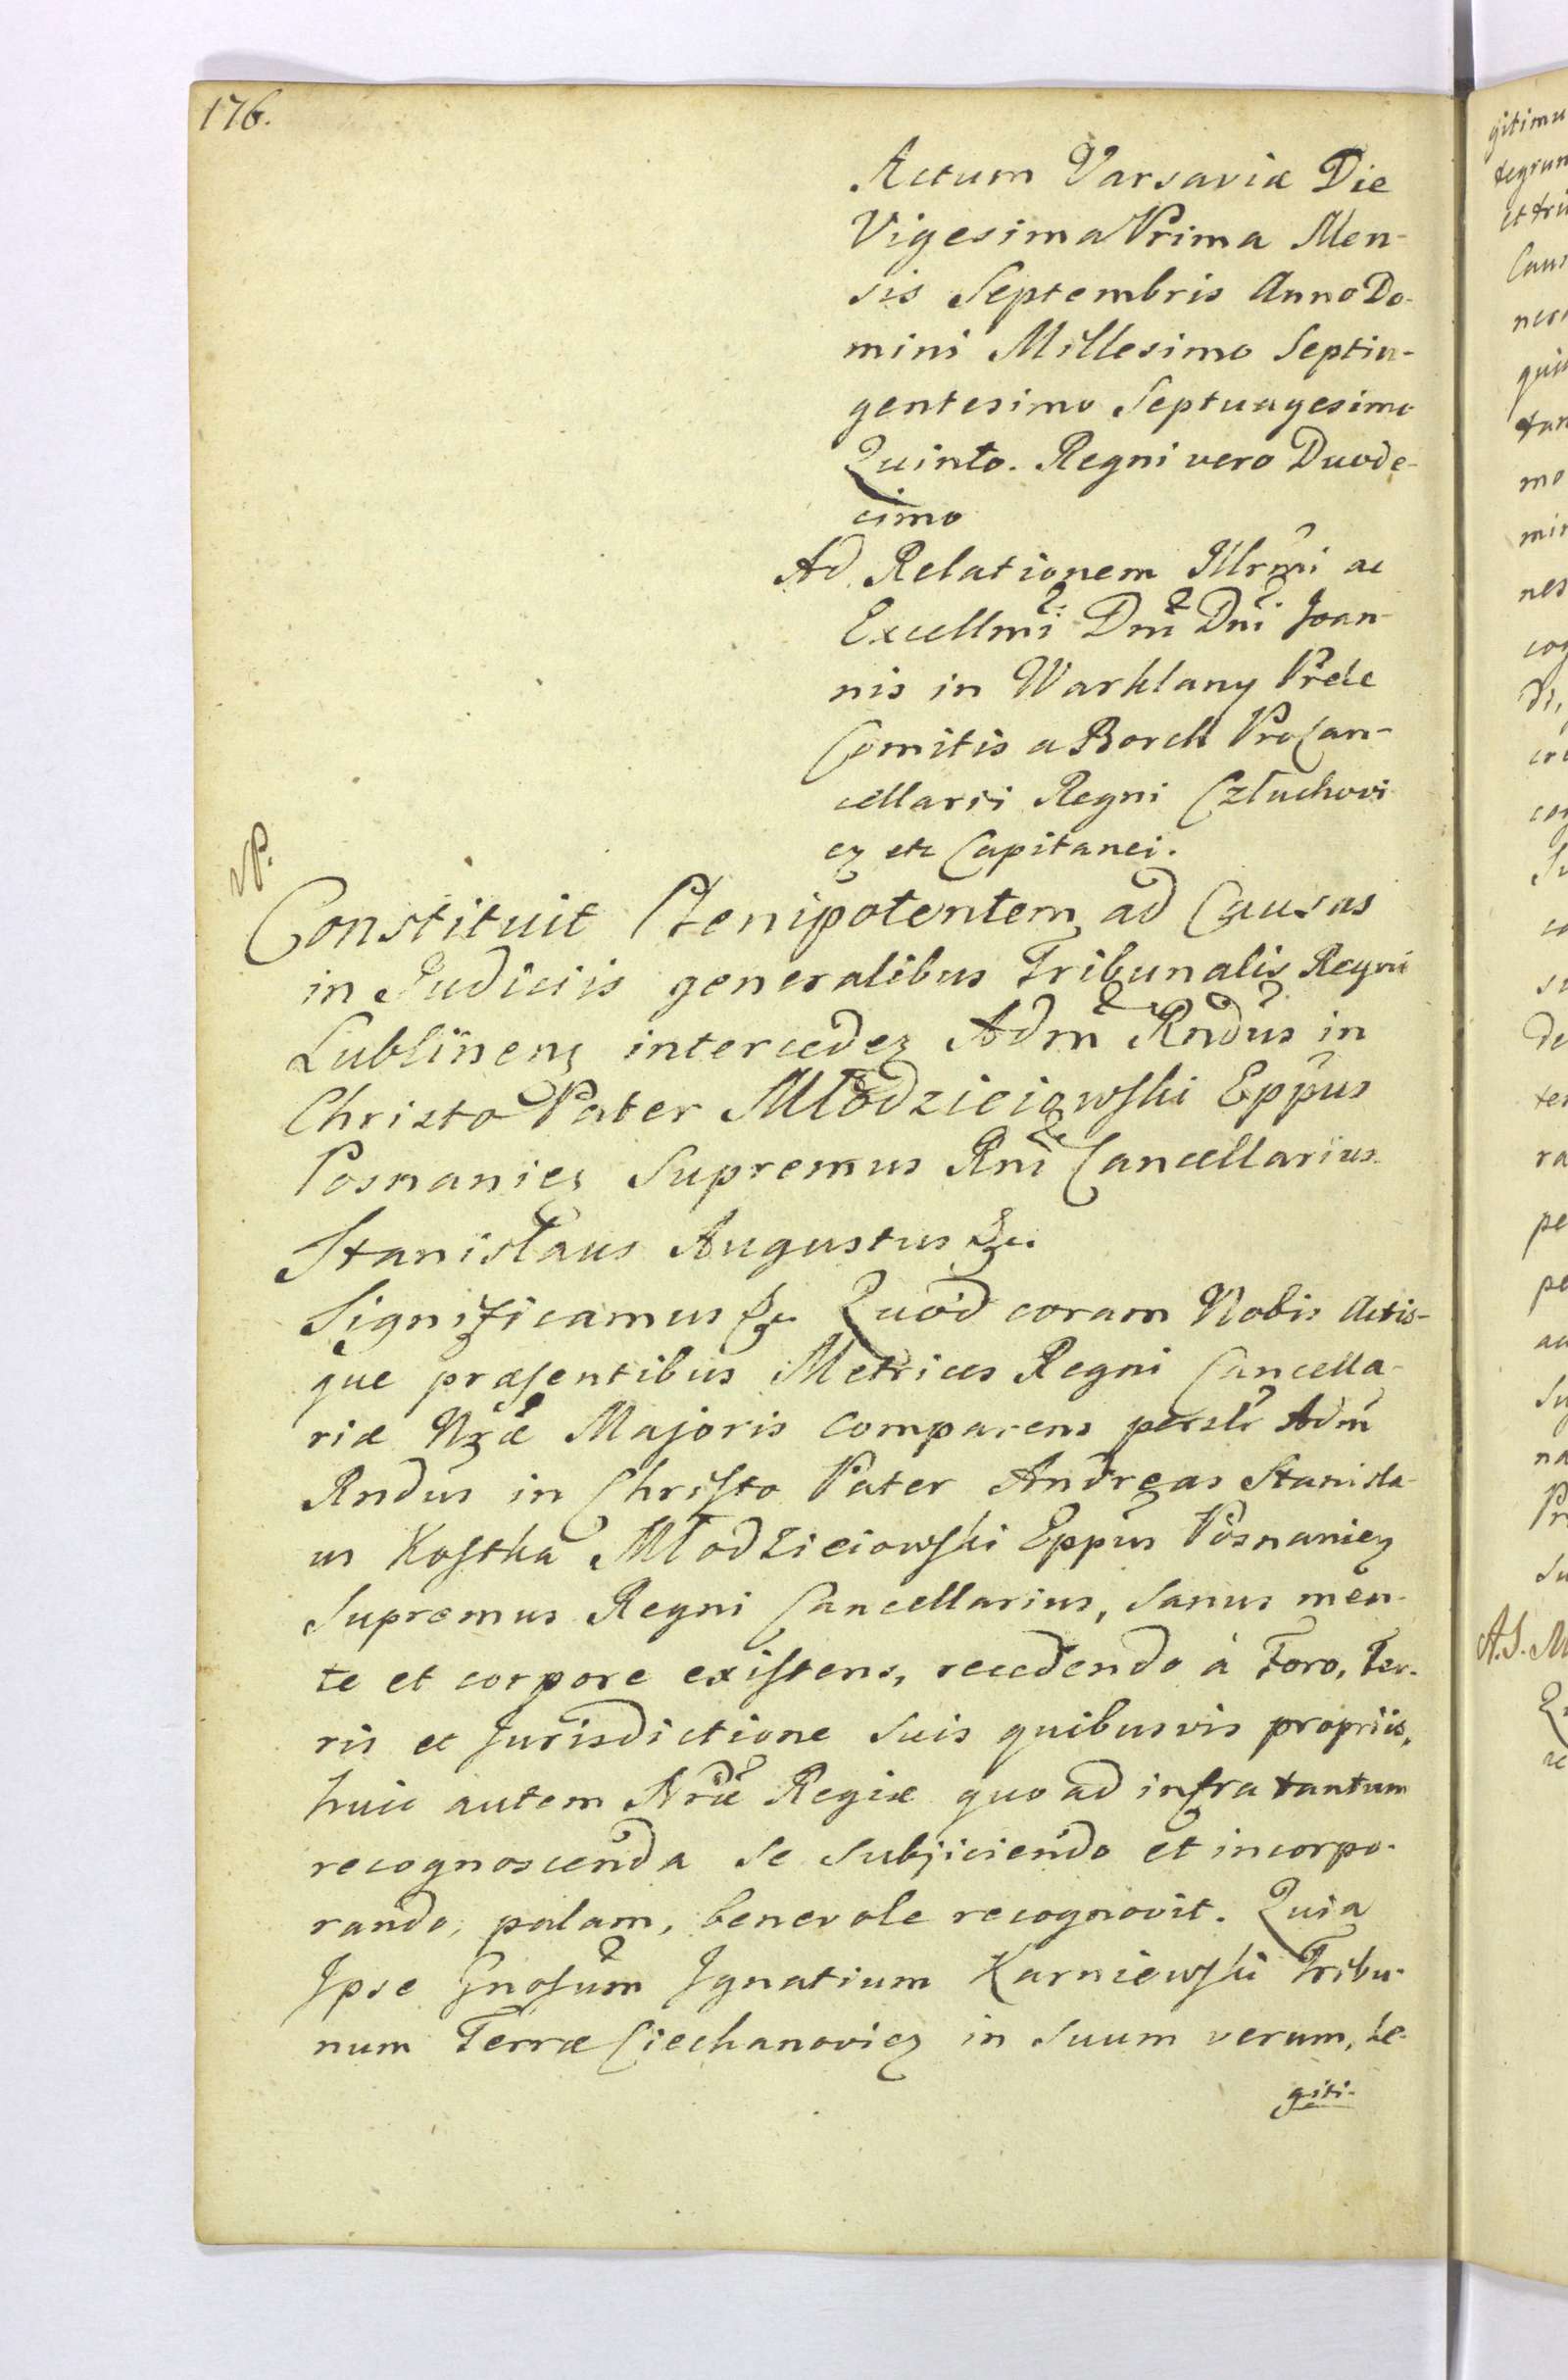 176.
Actum Varsaviæ Die
Vigesima Prima Men-
sis Septembris Anno Do-
mini Millesimo Septin-
gentesimo Septuagesimo
Quinto. Regni vero Duode-
cimo
Ad Relationem Illrmi ac
Excellmi Dni Dni Joan-
nis in Warklany Prele
Comitis a Borch ProCan-
cellarii Regni Człuchovi
en etc Capitanei.
Constituit Plenipotentem ad Causas
in Judiciis generalibus Tribunalis Regni
Lublinens intercedez Adm Rndus in
Christo Pater Młodzieiowski Eppus
Posnanies Supremus Rni Cancellarius.
Stanisłaus Augustus &c.
Significamus &c. Quod coram Nobis Actis-
que præsentibus Metrices Regni Cancella-
riæ Nræ Majoris comparens perslr Adm
Rndus in Christo Pater Andreas Stanisla-
us Kostka Młodzieiowski Eppus Posnaniez
Supremus Regni Cancellarius, sanus men-
te et corpore existens, recedendo à Foro, Ter-
ris et Jurisdictione suis quibusvis propriis,
huic autem Nræ Regiæ quo ad infra tantum
recognoscenda se subjiciendo et incorpo-
rando, palam, benevole recognovit. Quia
Ipse Gnosum Ignatium Karniewski Tribu-
num Terræ Ciechanoviez in suum verum, le-
giti-